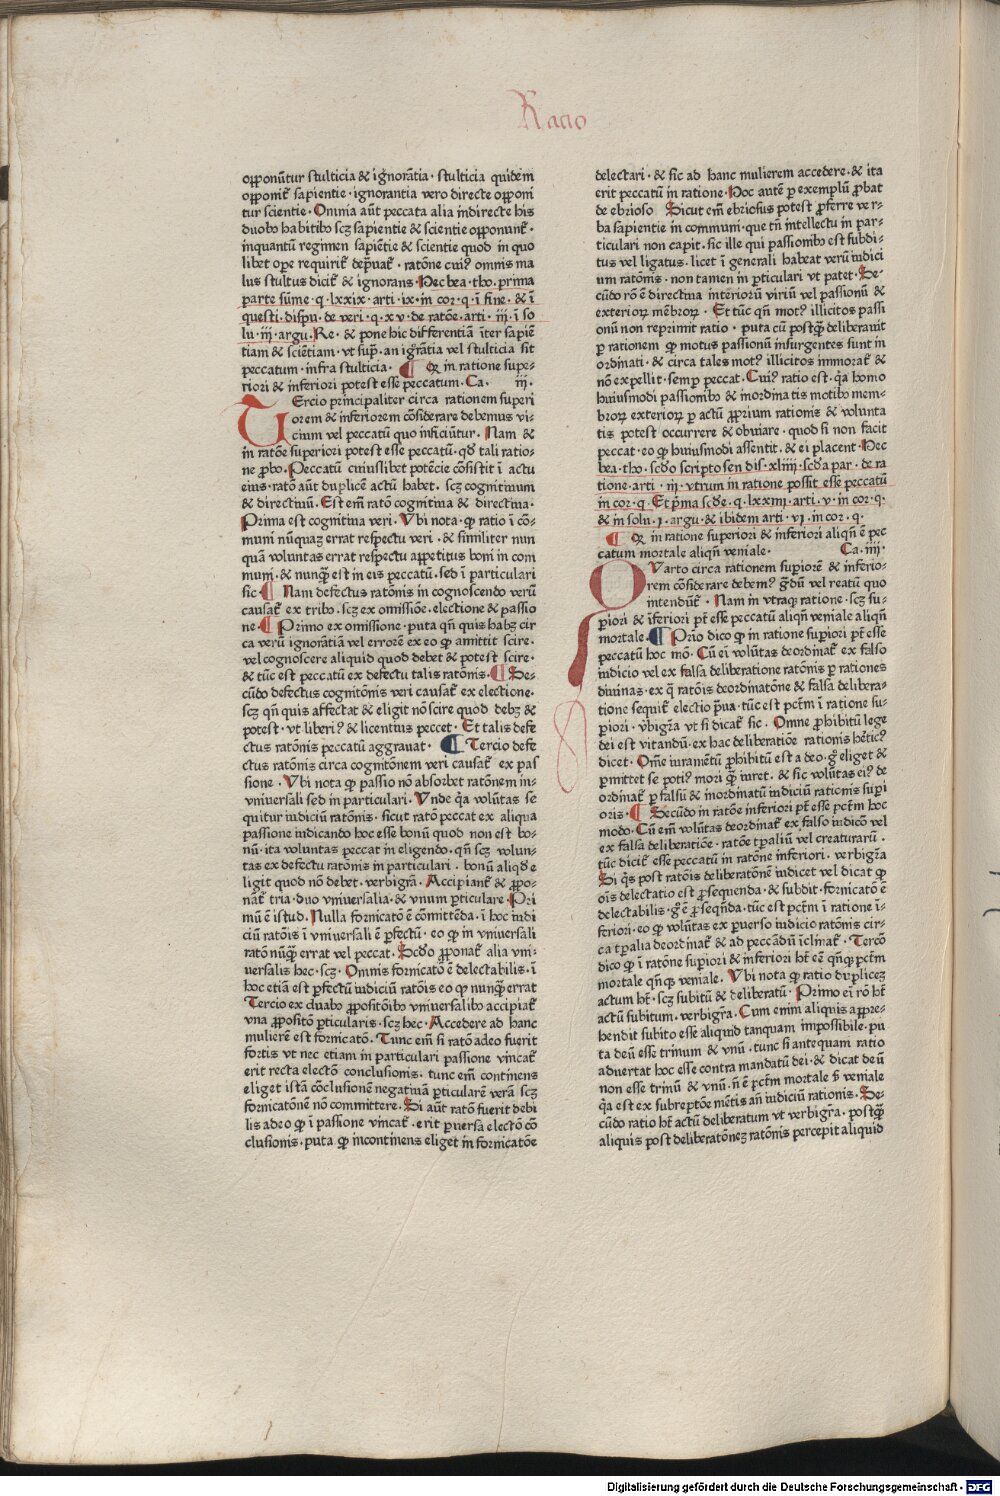 Racio
opponūtur stulticia & ignorātia · stulticia quidem
opponit᷑ sapientie · ignorantia vero directe opponi
tur scientie · Omnia aūt peccata alia indirecte his
duobꝰ habitibꝰ scꝫ sapientie & scientie opponunt᷑ ·
inquantū regimen sapiētie & scientie quod in quo
libet oꝑe requirit᷑ dep̄uat᷑ · ratōne cuiꝰ omnis ma
lus stultus dicit᷑ & ignorans · Hec bea · tho · prima
parte sūme · q · lxxix · arti · ix · in cor · q · ī fine · & ī
questi · dispu · de veri · q · xv · de ratōe · arti · iii · ī so
lu · iii · argu · Re · & pone hic differentiā īter sapiē
tiam & sciētiam · vt sup̄ · an igrātia vel stulticia sit
peccatum · infra stulticia · ¶ Qꝫ in ratione supe-
riori & inferiori potest esse peccatum · Ca · iii ·
TErcio principaliter circa rationem superi
orem & inferiorem cōsiderare debemus vi-
cium vel peccatū quo inficiūtur · Nam &
in ratōe superiori potest esse peccatū · qd̄ tali ratio-
ne ꝓbo · Peccatū cuiuslibet potēcie cōsistit ī actu
eius · ratō aūt duplicē actū habet · scꝫ cognitinum
& directiuū · Est em̄ ratō cognitiua & directiua ·
Prima est cognitiua veri · Vbi nota · ꝙ ratio ī cō-
muni nūquaꝫ errat respectu veri · & similiter nun
quā voluntas errat respectu appetitus boni in com
muni · & nunq̄ est in eis peccatū · sed ī particulari
sic ¶ Nam defectus ratōnis in cognoscendo verū
causat᷑ ex tribꝰ · scꝫ ex omissiōe · electione & passio
ne ¶ Primo ex omissione · puta qn̄ quis habꝫ cir
ca verū ignorātiā vel errorē ex eo ꝙ amittit scire ·
vel cognoscere aliquid quod debet & potest scire ·
& tūc est peccatū ex defectu talis ratōnis · ¶ Se-
cūdo defectus cognitōnis veri causat᷑ ex electione ·
scꝫ qn̄ quis affectat & eligit nō scire quod debꝫ &
potest · vt liberiꝰ & licentius peccet · Et talis defe
ctus ratōnis peccatū aggrauat · ¶ Tercio defe
ctus ratōnis circa cognitōnem veri causat᷑ ex pas
sione · Vbi nota ꝙ passio nō absorbet ratōnem in-
vniuersali sed in particulari · Vnde q̄a volūtas se
quitur iudiciū ratōnis · sicut ratō peccat ex aliqua
passione iudicando hoc esse bonū quod non est bo-
nū · ita voluntas peccat in eligendo · qn̄ scꝫ volun-
tas ex defectu ratōnis in particulari · bonū aliqd̄ e
ligit quod nō debet · verbigr̄a · Accipiant᷑ & ꝓpo-
nāt᷑ tria · duo vniuersalia & vnum ꝑticulare · Pri
mū ē istud · Nulla fornicatō ē cōmittēda · ī hoc iudi
ciū ratōis ī vniuersali ē perfectū · eo ꝙ in vniuersali
ratō nūq̄ errat vel peccat · Scd̄o ꝓponat᷑ alia vni-
uersalis hec · scꝫ · Omnis fornicatō ē delectabilis · ī
hoc etiā est ꝑfectū iudiciū ratōis eo ꝙ nunq̄ errat
Tercio ex duabꝰ ꝓpositōibꝰ vniuersalibꝰ accipiat᷑
vna ꝓpositō ꝑticularis · scꝫ hec · Accedere ad hanc
mulierē est fornicatō · Tunc em̄ si ratō adeo fuerit
fortis vt nec etiam in particulari passione vincat᷑
erit recta electō conclusionis · tunc em̄ continens
eliget istā cōclusionē negatiuā ꝑticularē verā scꝫ
fornicatōnē nō committere · Si aūt ratō fuerit debi
lis adeo ꝙ ī passione vincat᷑ · erit ꝑuersa electō cō
clusionis · puta ꝙ incontinens eliget in fornicatōe
delectari · & sic ad hanc mulierem accedere · & ita
erit peccatū in ratione · Hoc autē ꝑ exemplū ꝓbat
de ebrioso Sicut em̄ ebriosus potest ꝓferre ver-
ba sapientie in communi · que tn̄ intellectu in par-
ticulari non capit · sic ille qui passionibꝰ est subdi-
tus vel ligatus · licet ī generali habeat verū iudici
um ratōnis · non tamen in ꝑticulari vt patet · Se-
cūdo rō ē directiua interiorū viriū vel passionū &
exteriorꝝ mēbrorꝝ · Et tūc qn̄ motꝰ illicitos passi
onū non reprimit ratio · puta cū postq̄ deliberauit
ꝑ rationem ꝙ motus passionū insurgentes sunt in
ordinati · & circa tales motꝰ illicitos immorat᷑ &
nō expellit · semꝑ peccat · Cuiꝰ ratio est · q̄a homo
huiusmodi passionibꝰ & inordinatis motibꝰ mem-
brorꝝ exteriorꝝ ꝑ actū ꝓprium rationis & volunta
tis potest occurrere & obuiare · quod si non facit
peccat · eo ꝙ huiusmodi assentit · & ei placent · Hec
bea · tho · scd̄o scripto sen dis · xliiii · scd̄a par · de ra
tione · arti · iii · vtrum in ratione possit esse peccatū
in cor · q · Et p̄ma scd̄e · q · lxxiiii · arti · v · in cor · q ·
& in solu · i · argu · & ibidem arti · vi · in cor · q ·
¶ Qꝫ in ratione superiori & inferiori aliqn̄ ē pec
catum mortale aliqn̄ veniale · Ca · iiii ·
QVarto circa rationem supiorē & inferio-
rem cōsiderare debemꝰ gradū vel reatū quo
intendūt᷑ · Nam in vtraqꝫ ratione · scꝫ su-
ꝑiori & īferiori pt̄ esse peccatū aliqn̄ veniale aliqn̄
mortale · ¶ Prīo dico ꝙ in ratione suꝑiori pt̄ esse
peccatū hoc mō · Cū eī volūtas deordinat᷑ ex falso
iudicio vel ex falsa deliberatione ratōnis ꝑ rationes
diuinas · ex q̄ ratōis deordinatōne & falsa delibera-
tione sequit᷑ electio p̄ua · tūc est pctm̄ ī ratione su-
ꝑiori · v̄bigr̄a vt si dicat᷑ sic · Omne ꝓhibitū lege
dei est vitandū · ex hac deliberatiōe rationis hēticꝰ
dicet · Om̄e iuramētū ꝓhibitū est a deo · gͦ eliget &
ꝑmittet se potiꝰ mori ꝙ iuret · & sic volūtas eiꝰ de
ordinat᷑ ꝑ falsū & inordinatū iudiciū rationis supi
oris · ¶ Secūdo in ratōe inferiori pt̄ esse pctm̄ hoc
modo · Cū em̄ volūtas deordinat᷑ ex falso iudicō vel
ex falsa deliberatiōe · ratōe tꝑaliū vel creaturarū ·
tūc dicit᷑ esse peccatū in ratōne inferiori · verbigr̄a
Si q̄s post ratōis deliberatōnē iudicet vel dicat ꝙ
ois delectatio est ꝓsequenda · & subdit · fornicatō ē
delectabilis · gͦ ē ꝓseqn̄da · tūc est pctm̄ ī ratione ī-
feriori · eo ꝙ volūtas ex ꝑuerso iudicio ratōnis cir-
ca tꝑalia deordinat᷑ & ad peccādū īclinat᷑ · Tercō
dico ꝙ ī ratōne suꝑiori & inferiori ht̄ eē qn̄qꝫ pctm̄
mortale qn̄qꝫ veniale · Vbi nota ꝙ ratio dupliceꝫ
actum ht̄ · scꝫ subitū & deliberatū · Primo eī rō ht̄
actū subitum · verbigr̄a · Cum enim aliquis appre-
hendit subito esse aliquid tanquam impossibile · pu
ta deū esse trinum & vnū · tunc si antequam ratio
aduertat hoc esse contra mandatū dei · & dicat deū
non esse trinū & vnū · n̄ ē pctm̄ mortale s̄ veniale
q̄a est ex subreptōe mētis an̄ iudiciū rationis · Se-
cūdo ratio ht̄ actū deliberatum vt verbigr̄a · postq̄
aliquis post deliberatōneꝫ ratōnis percepit aliquid
Digitalisierung gefördert durch die Deutsche Forschungsgemeinschaft - DFG